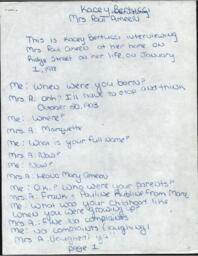 Kacey Bertucci
Mrs Paul Ameen
This is Kacey Bertucci interviewing
Mrs Paul Ameen at her home on
Ridge Street on her life, on January
Me: When were you born?
Mrs A: Ooh? I'll have to stop and think
October 30, 1903
Me: Where?
Mrs A: Marquette
Me: What is your full name?
Mrs A: Now?
Me: Now?
Mrs A: Mary Ameen
Me: O.K.? Who were your parents?
Mrs A: Frank + Pauline
Me: What was your Childhood like
When you were growing up?
Mrs A: Fine No complaints
Me: No complaints (laughing)
Mrs A:
Page 1